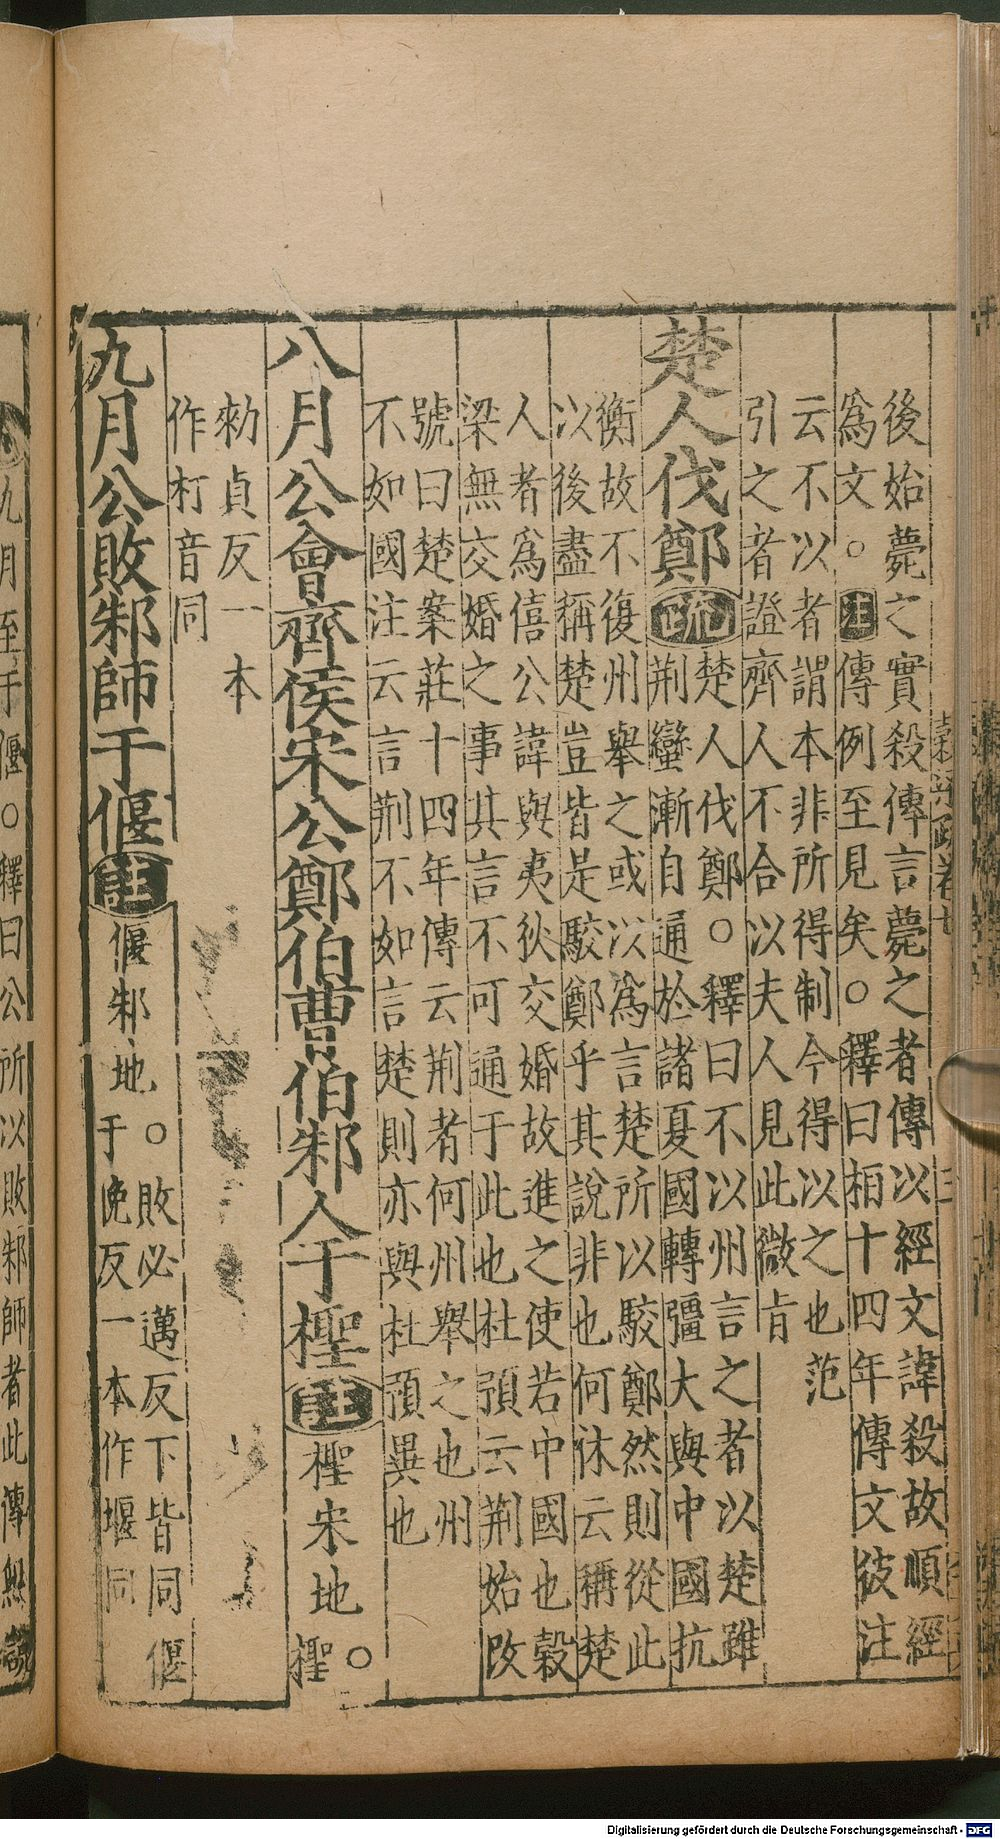 後始薨之實殺傳言薨之者傳以經文諱殺故順經
爲文○注傳例至見矣○釋曰相十四年傳文彼注
云不以者謂本非所得制今得以之也范
引之者證齊人不合以夫人見此微肯
楚人伐鄭疏楚人伐鄭○釋曰不以州言之者以楚雖
荆蠻漸自通於諸夏國轉彊大與中國抗
衡故不復州舉之或以爲言楚所以駮鄭然則從此
以後盡稱楚豈皆是駮鄭乎其說非也何休云稱楚
人者爲僖公諱與夷狄交婚故進之使若中國也穀
梁無交婚之事其言不可通于此也杜預云荆始改
號曰楚案莊十四年傳云荆者何州舉之也州
不如國注云言荆不如言楚則亦與杜預異也
八月公會齊侯宋公鄭伯曹伯邾人于檉註檉宋地○檉
勑貞反一本
作朾音同
九月公敗邾師于偃註偃邾地○敗必邁反下皆同偃
于晚反一本作堰同
九月至于偃○釋曰公所以敗邾師者此傳無說
Digitalisierung gefördert durch die Deutsche Forschungsgemeinschaft - DFG